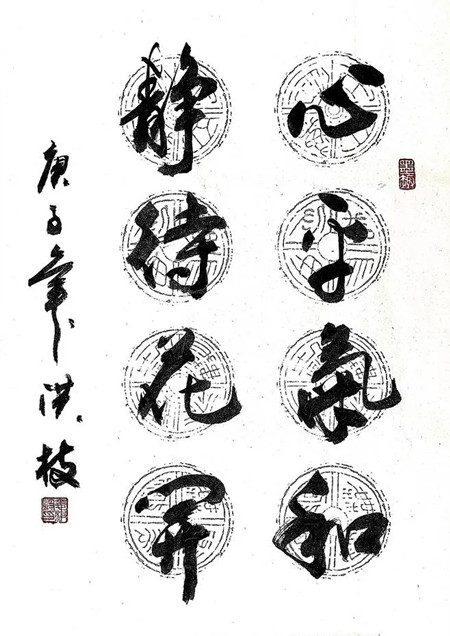 心平氣和
静待花開
庚子年洪枝